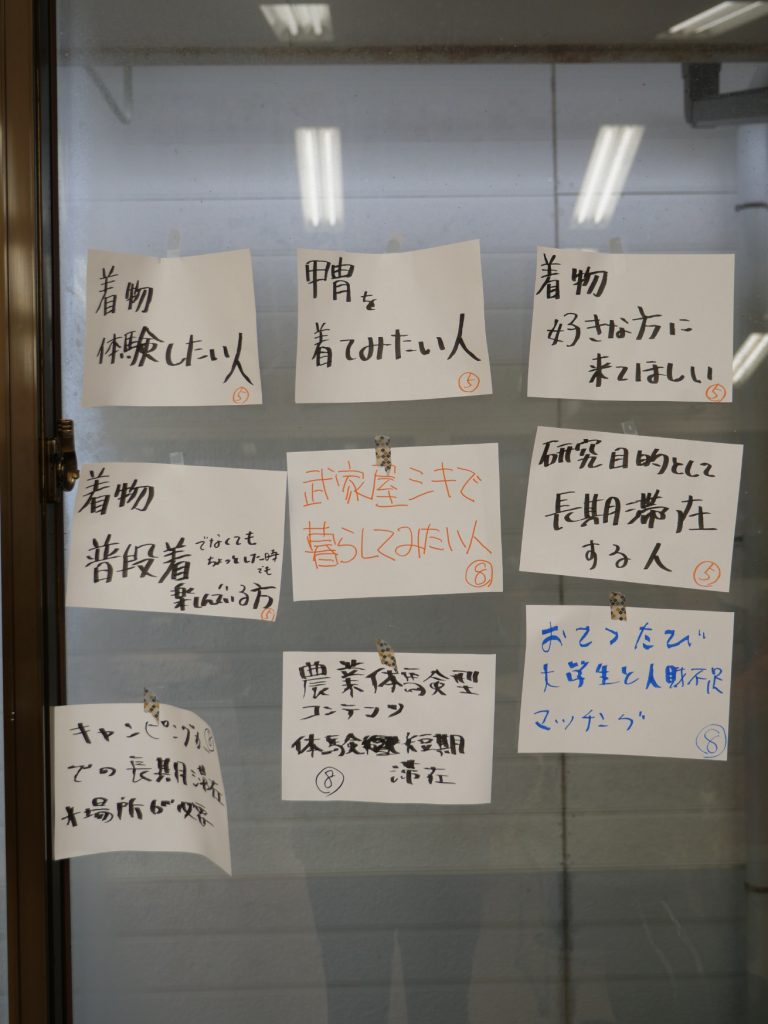 着物
体験したい人
⑤
甲冑を
着てみたい人
⑤
着物
好きな方に
来てほしい
⑤
着物
普段着でなくても
ちょっとした時
でも
楽しんでいる方
⑤
武家屋シキで
暮らしてみたい人
⑧
研究目的として
長期滞在
する人
⑤
キャンピングカー
での長期滞在
※場所が必要
農業体験型
コンテンツ
体験 短期
滞在
⑧
おてつたび
大学生と人財不足
マッチング
⑧